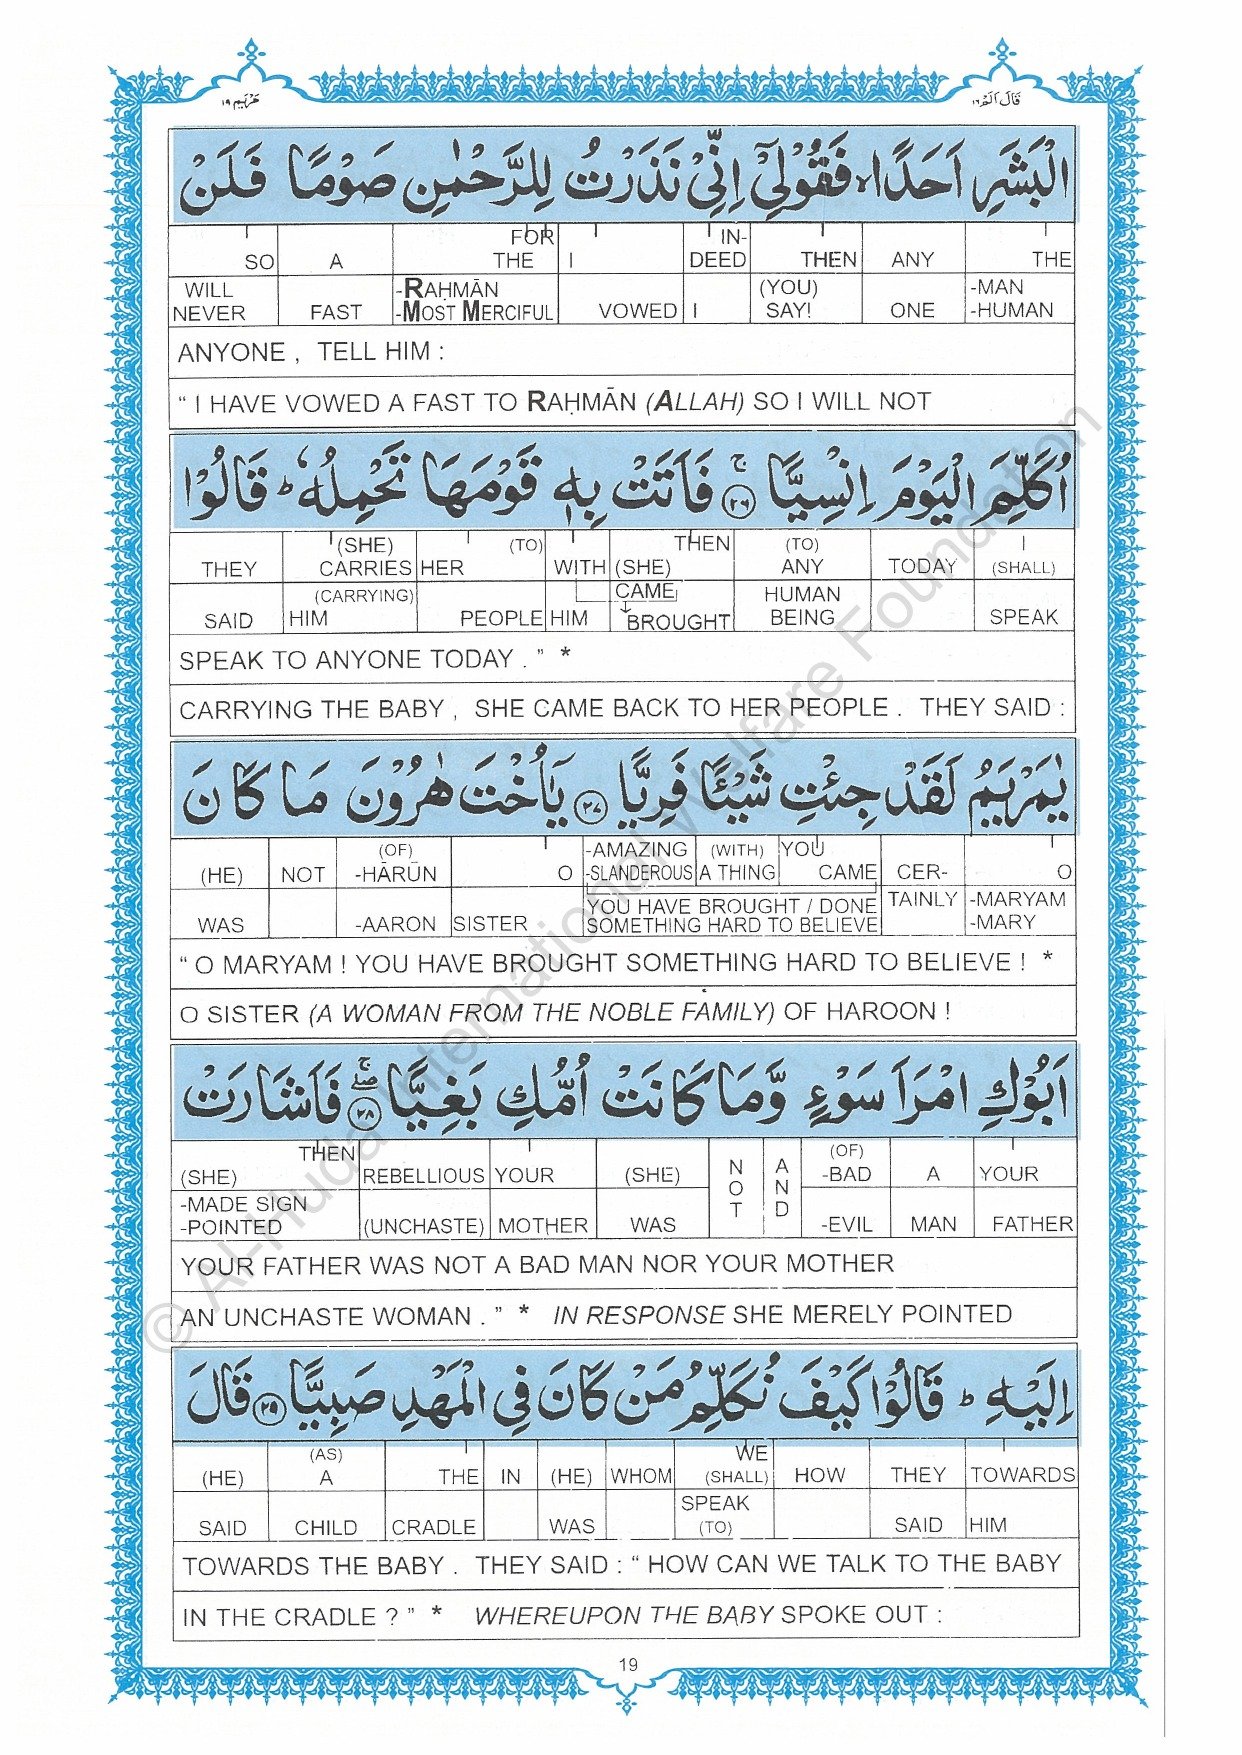 مَرْيَم ١٩
قَالَ اَلَمْ ١٦
الْبَشَرِ اَحَدًا ۙ فَقُوْلِيْٓ اِنِّيْ نَذَرْتُ لِلرَّحْمٰنِ صَوْمًا فَلَنْ
SO A FOR THE I IN- DEED THEN ANY THE
WILL NEVER FAST -RAḤMĀN -MOST MERCIFUL VOWED I (YOU) SAY! ONE -MAN -HUMAN
ANYONE , TELL HIM :
“ I HAVE VOWED A FAST TO RAḤMĀN (ALLAH) SO I WILL NOT
اُكَلِّمَ الْيَوْمَ اِنْسِيًّا ۚ ٢٦ فَاَتَتْ بِهٖ قَوْمَهَا تَحْمِلُهٗ ۭ قَالُوْا
THEY (SHE) CARRIES HER (TO) WITH THEN (SHE) (TO) ANY TODAY I (SHALL)
SAID (CARRYING) HIM PEOPLE HIM CAME BROUGHT HUMAN BEING SPEAK
SPEAK TO ANYONE TODAY . ” *
CARRYING THE BABY , SHE CAME BACK TO HER PEOPLE . THEY SAID :
يٰمَرْيَمُ لَقَدْ جِئْتِ شَيْـًٔا فَرِيًّا ٢٧ يٰٓاُخْتَ هٰرُوْنَ مَا كَانَ
(HE) NOT (OF) -HĀRŪN O -AMAZING -SLANDEROUS (WITH) A THING YOU CAME CER- O
WAS -AARON SISTER YOU HAVE BROUGHT / DONE SOMETHING HARD TO BELIEVE TAINLY -MARYAM -MARY
“ O MARYAM ! YOU HAVE BROUGHT SOMETHING HARD TO BELIEVE ! *
O SISTER (A WOMAN FROM THE NOBLE FAMILY) OF HAROON !
اَبُوْكِ امْرَاَ سَوْءٍ وَّمَا كَانَتْ اُمُّكِ بَغِيًّا ۖۚ ٢٨ فَاَشَارَتْ
(SHE) THEN REBELLIOUS YOUR (SHE) NOT AND (OF) -BAD A YOUR
-MADE SIGN -POINTED (UNCHASTE) MOTHER WAS -EVIL MAN FATHER
YOUR FATHER WAS NOT A BAD MAN NOR YOUR MOTHER
AN UNCHASTE WOMAN . ” * IN RESPONSE SHE MERELY POINTED
اِلَيْهِ ۭ قَالُوْا كَيْفَ نُكَلِّمُ مَنْ كَانَ فِي الْمَهْدِ صَبِيًّا ٢٩ قَالَ
(HE) (AS) A THE IN (HE) WHOM WE (SHALL) HOW THEY TOWARDS
SAID CHILD CRADLE WAS SPEAK (TO) SAID HIM
TOWARDS THE BABY . THEY SAID : “ HOW CAN WE TALK TO THE BABY
IN THE CRADLE ? ” * WHEREUPON THE BABY SPOKE OUT :
19
© Al-Huda International Welfare Foundation